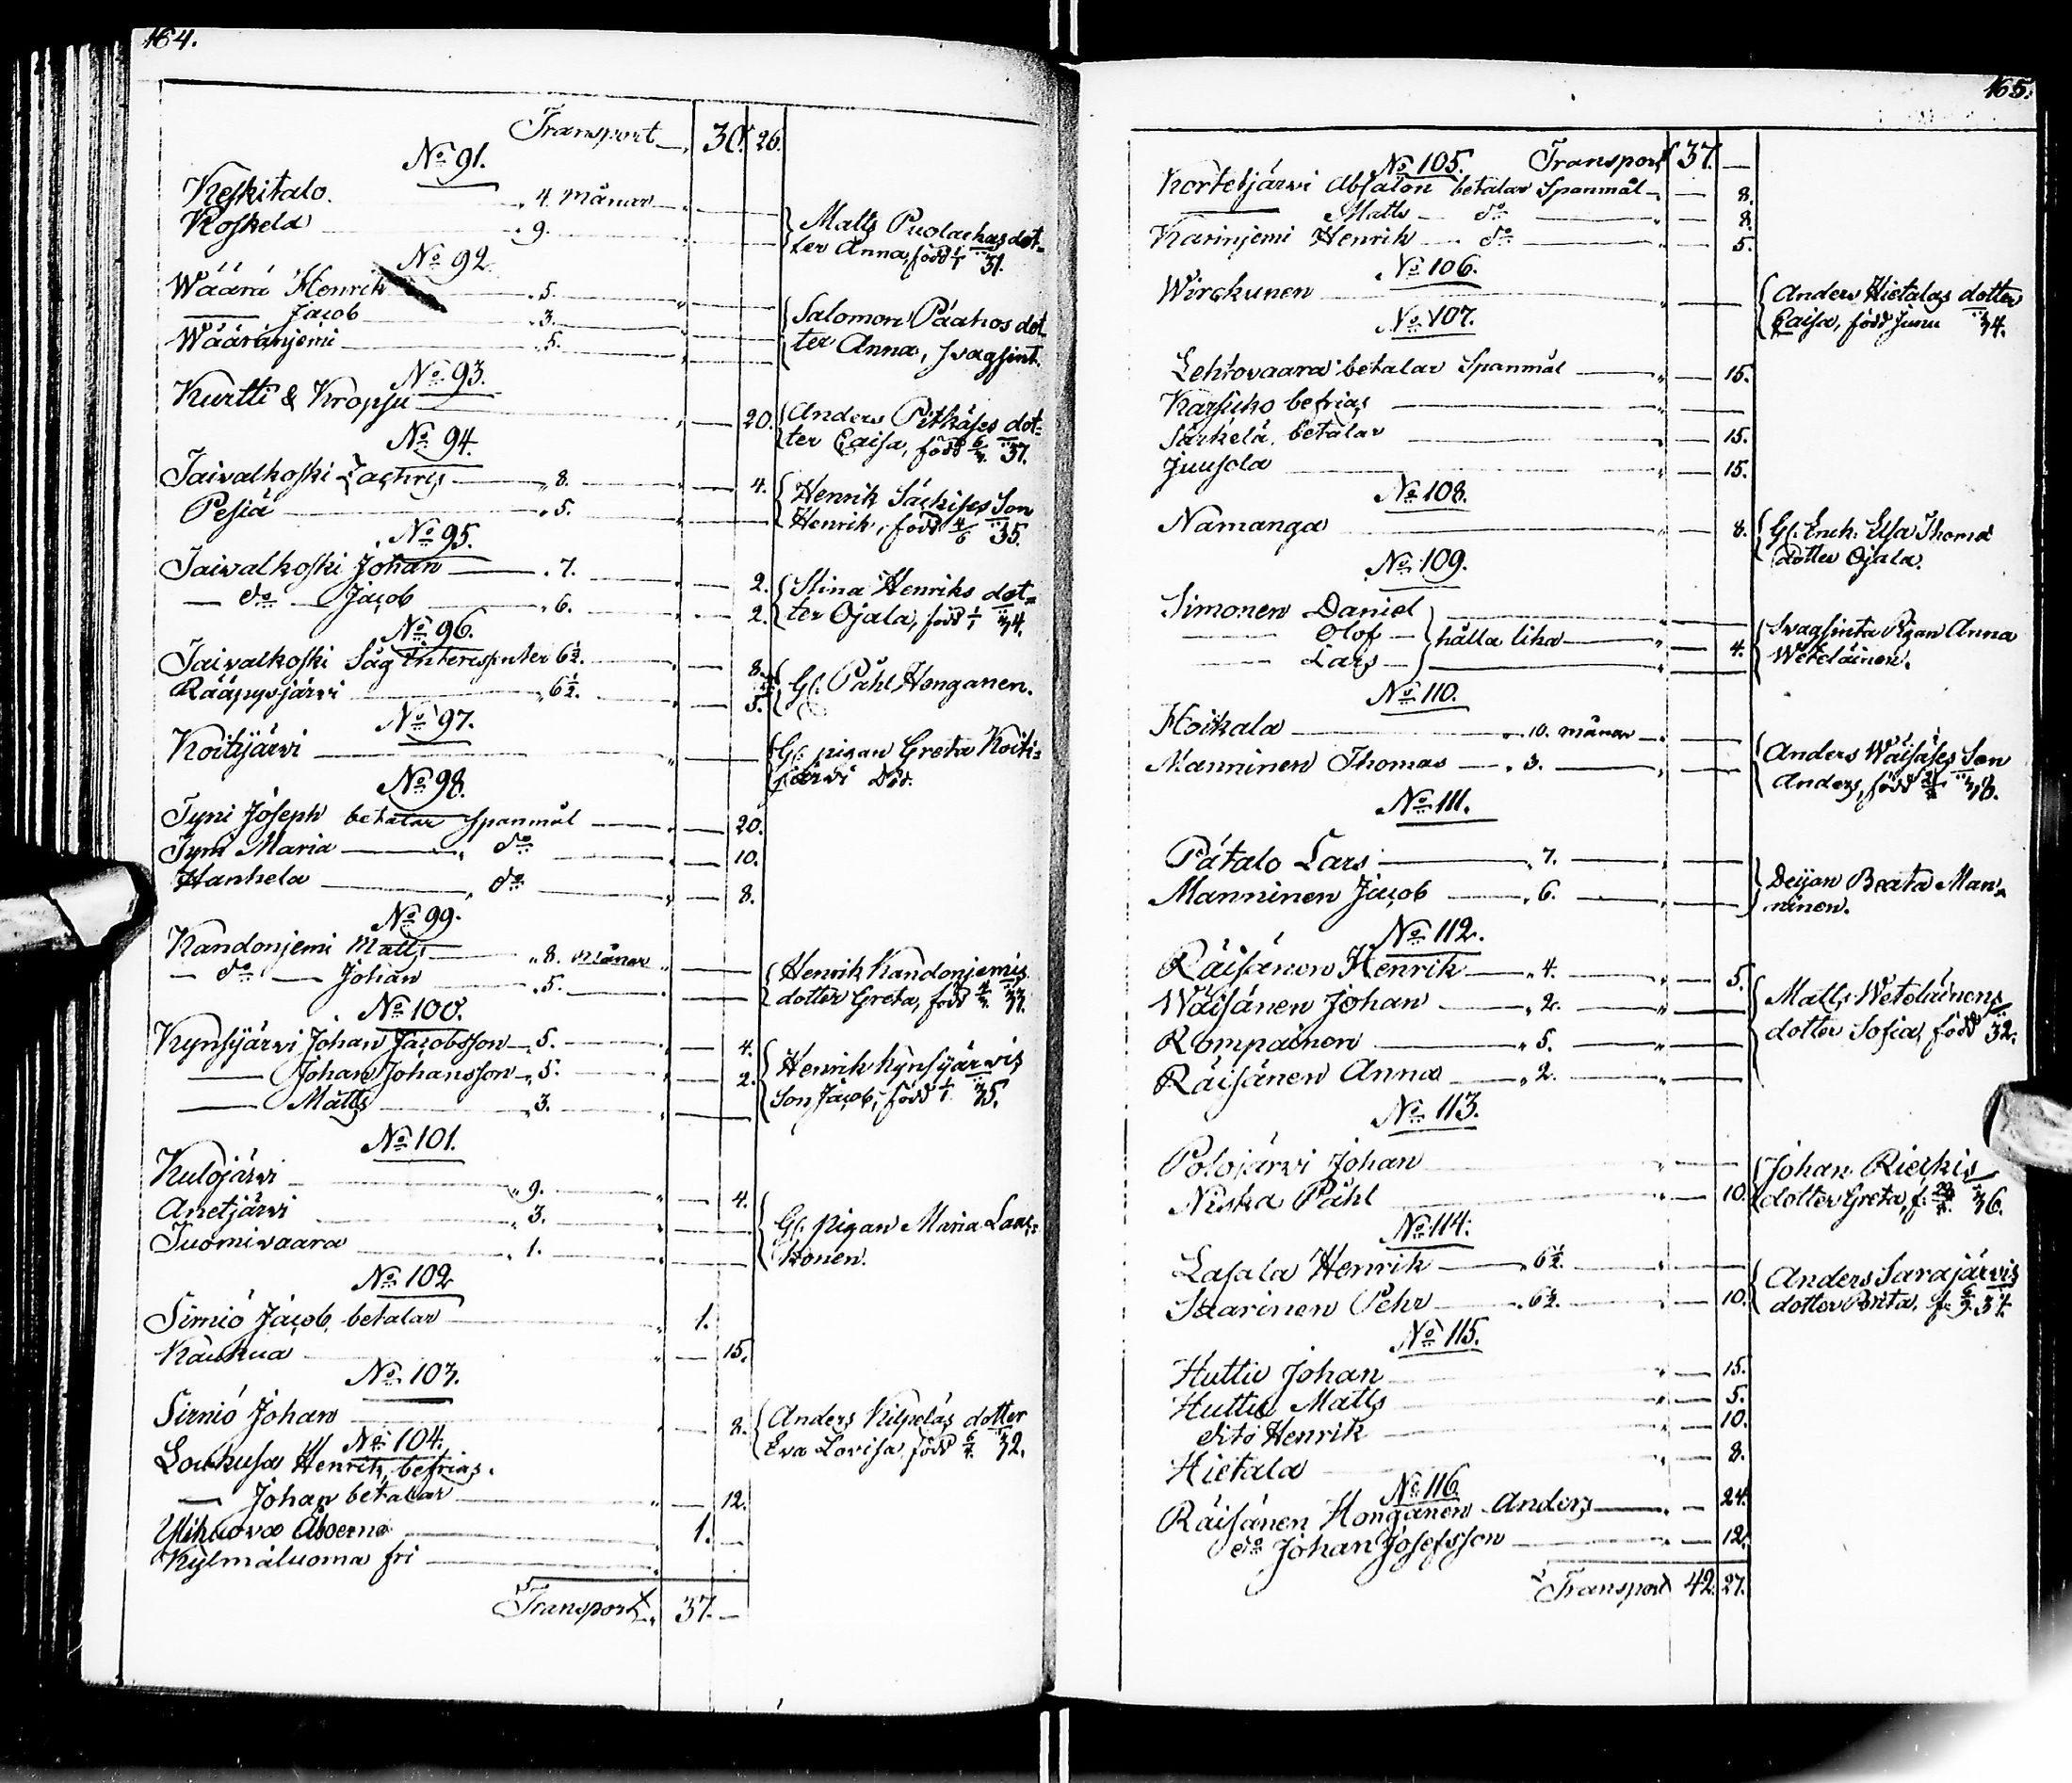 164.
Transport 30. 26.
No 91.
Keskitalo. 4. månar
Koskela 9.
Matts Puolackas dot-
ter Anna, född 1/1 31.
No 92.
Wäärä Henrik 5.
Jacob 3.
Wääränjemi 5.
Salomon Paahos dot
ter Anna, svagsint.
No 93.
Kurtti & Kropsu 20.
Anders Pitkäses dot-
ter Caisa, född 6/4 37.
No 94.
Taivalkoski Zachris 8. 4.
Pesiä 5.
Henrik Säckises Son
Henrik, född 4/6 35.
No 95.
Taivalkoski Johan 7. 2.
do Jacob 6. 2.
Stina Henriks dot-
ter Ojala, född 1/1 34.
No 96.
Taivalkoski Såg Interessenter 6½. 8.
Rääpysjärvi 6½. 5.
Gl. Påhl Honganen.
No 97.
Koitijärvi
Gl. pigan Greta Koiti-
järvi Död.
No 98.
Tyni Joseph betalar Spanmål 20.
Tyni Maria do 10.
Hanhela do 8.
No 99.
Kandonjemi Matts 8. månar
do Johan 5.
Henrik Kandonjemis
dotter Greta, född 4/4 33.
No 100.
Kynsijärvi Johan Jacobsson 5. 4.
Johan Johansson 5. 2.
Matts 3.
Henrik Kynsijärvis
Son Jacob, född 1/1 35.
No 101.
Kulojärvi 9. 4.
Anetjärvi 3.
Tuomivaara 1.
Gl. pigan Maria Laas-
konen.
No 102
Sirniö Jacob, betalar 1.
Kaukua 15.
No 103.
Sirniö Johan 8.
Anders Kilpeläs dotter
Eva Lovisa född 6/4 32.
No 104.
Loukusa Henrik, befrias.
Johan betalar 12.
Ylikuova Åboerne 1.
Kylmäluoma fri
Transport 37.
165.
No 105. Transport 37.
Kortetjärvi Absalon betalar Spanmål 8.
Matts do 8.
Karinjemi Henrik do 5.
No 106.
Wirckunen
Anders Hietalas dotter
Caisa, född Junii 34.
No 107.
Lehtovaara betalar Spanmål 15.
Karsicko befrias
Särkelä betalar 15.
Juusola 15.
No 108.
Namanga 8.
Gl. Enck. Elsa Thomæ
dotter Ojala.
No 109.
Simonen Daniel
Olof hålla lika
Lars 4.
Svagsinta Pigan Anna
Weteläinen.
No 110.
Hoikala 10. månar
Manninen Thomas 3.
Anders Wäisäses Son
Anders, född 38.
No 111.
Pätalo Lars 7.
Manninen Jacob 6.
Deijan Beata Man-
ninen.
No 112.
Räisänen Henrik 4. 5.
Wäisänen Johan 2.
Rompainen 5.
Räisänen Anna 2.
Matts Weteläinens
dotter Sofia, född 32.
No 113.
Polojärvi Johan
Niska Påhl 10.
Johan Rieckis
dotter Greta, f. 36.
No 114.
Lasala Henrik 6½.
Saarinen Pehr 6½. 10.
Anders Sarajärvis
dotter Brita, f. 37.
No 115.
Huttu Johan 15.
Huttu Matts 5.
dito Henrik 10.
Hietala 8.
No 116.
Räisänen Honganen Anders 24.
do Johan Josefsson 12.
Transport 42. 27.